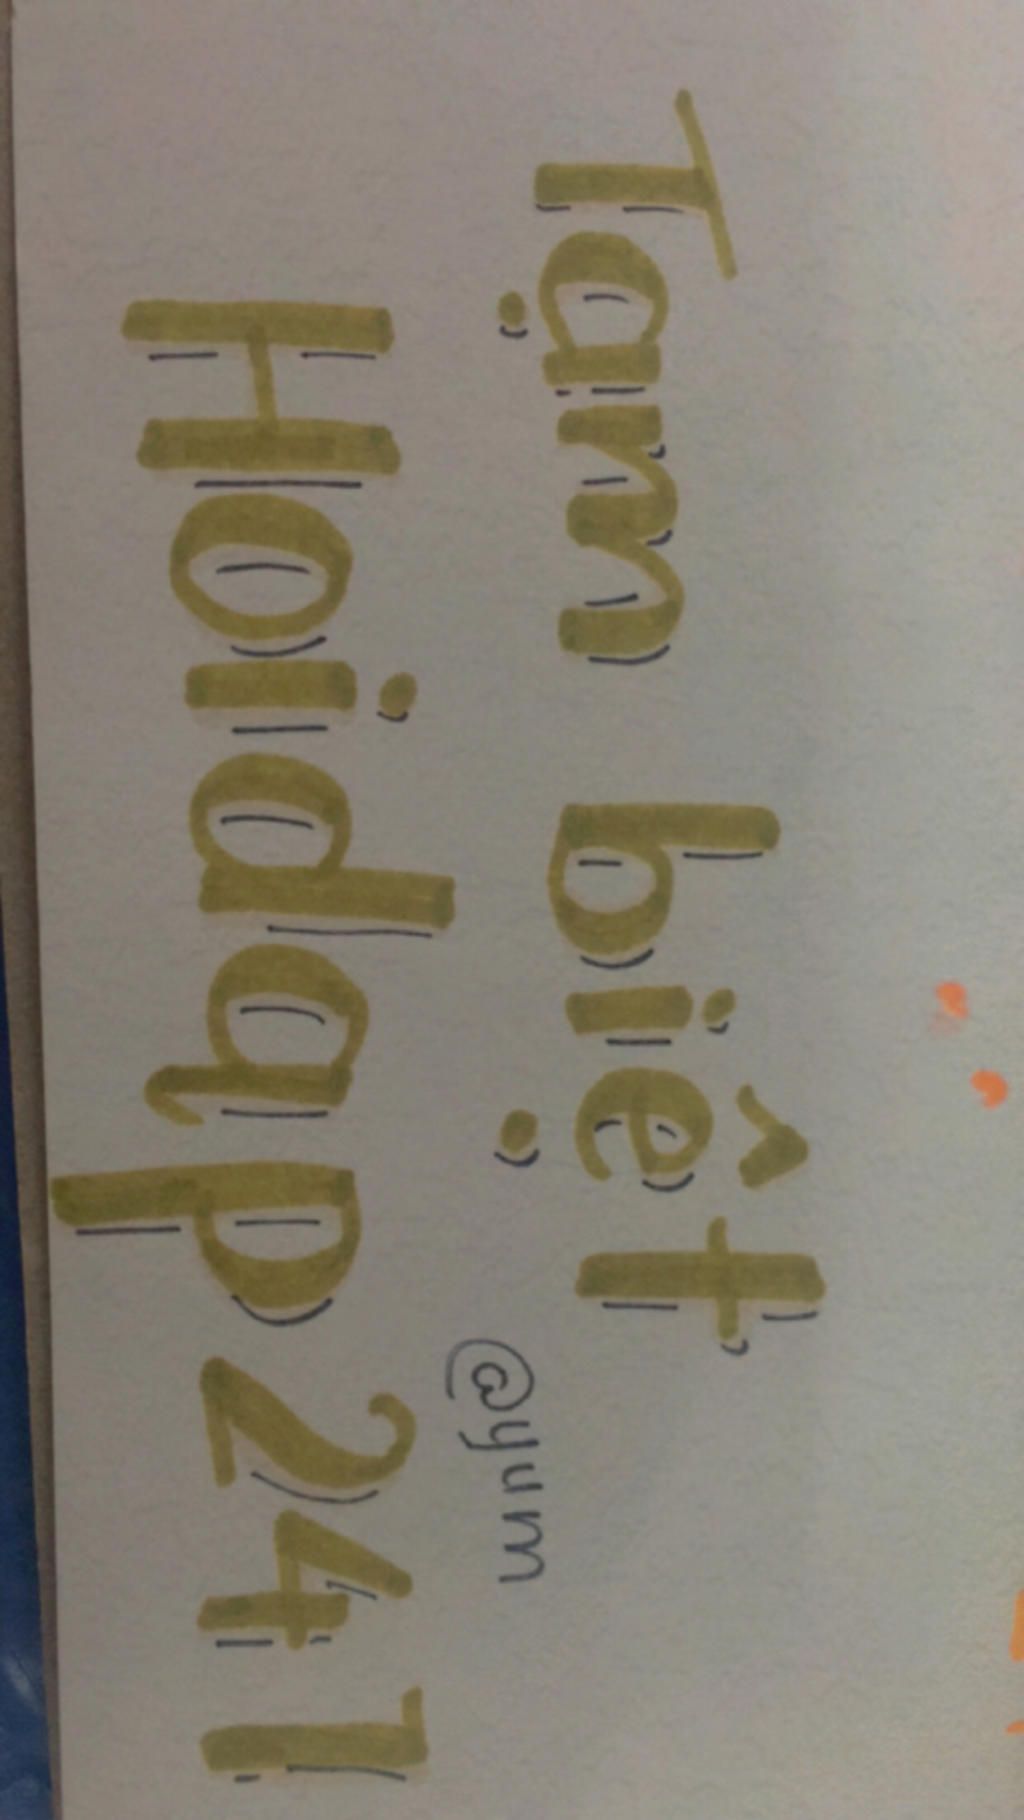 Tạm biệt
@yum
Hoidap241